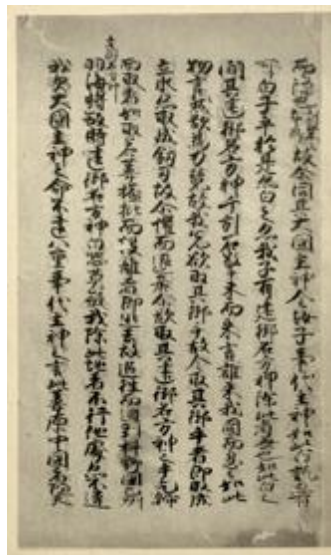 故尓問其大國主神今汝子事代主神如此白訖亦有
可白子乎於是亦白之亦我子有建御名方神除此者無也如此白之
間其建御名方神千引石擎手末而来言誰来我國而忍々如此
物言然欲為力競故我先欲取其御手故令取其御手者即取成
立氷亦取成釼刃故尓懼而退居尓欲取其建御名方神之手乞歸
而取者如取若葦搤批而投離者即逃去故追往而迫到科野國之州
羽海将殺時建御名方神白恐莫殺我除此地者不行他處亦不違
我父大國主神之命不違八重事代主神之言此葦原中國者隨天